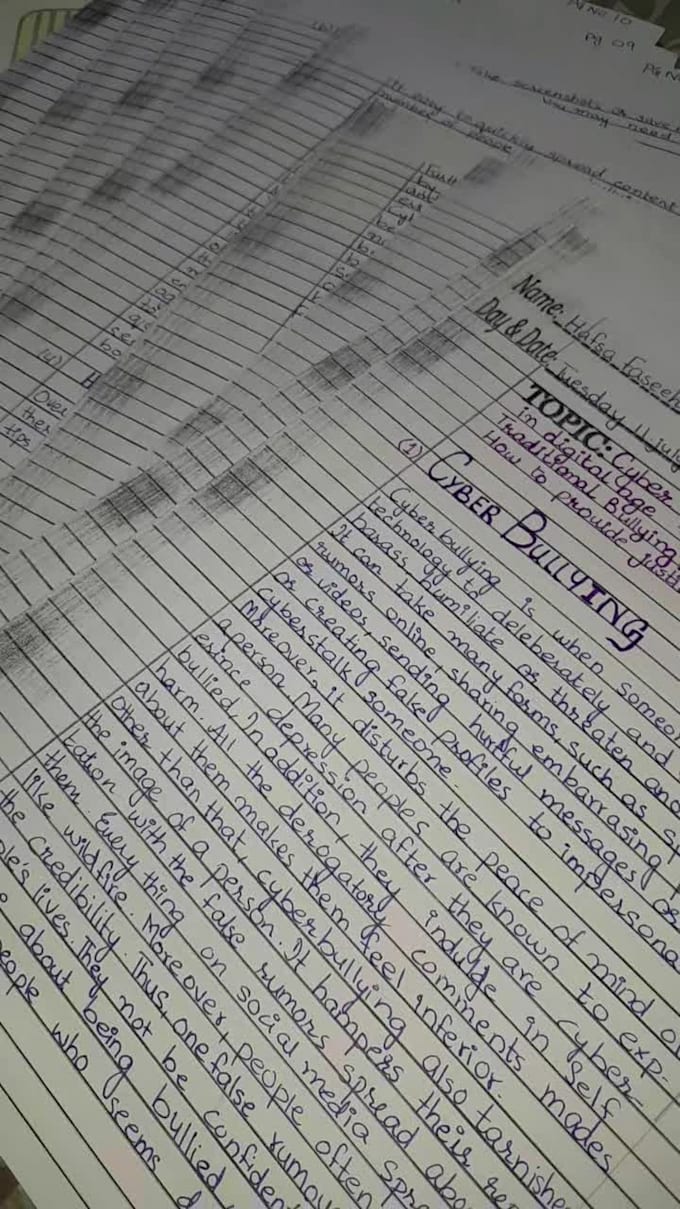 Pg No 10
Pg 09
Pg No
Take screenshots or save
you may need
It easy to quickly spread content
(4)
Over
ther
tips
Name: Hafsa Faseeh
Day & Date: Tuesday 11 July
TOPIC: Cyber
in digital age
Traditional Bullying
How to provide justi
(1) CYBER BULLYING
Cyber bullying is when someo
technology to deleberately and
harass, humiliate or threaten ano
It can take many forms, such as sp
rumors online, sharing embarrasing
or videos, sending hurtful messages or
or creating fake profiles to impersona
cyberstalk someone.
Moreover, it disturbs the peace of mind o
a person. Many peoples are known to exp-
erince depression after they are cyber-
bullied. In addition, they indulge in self
harm. All the derogatory comments made
about them makes them feel inferior.
Other than that, cyberbullying also tarnishe
the image of a person. It hampers their re
tation with the false rumors spread abou
them. Every thing on social media spre
like wildfire. Moreover, people often
the credibility. Thus, one false rumour
ple's lives. They not be confident
about being bullied
eople who seems d